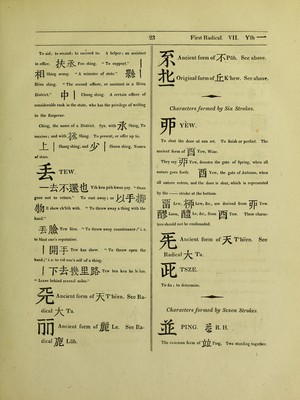 23 First Radical. VII. Yih 一
To aid; to assist; to succeed to. A helper; an assistant
in office. 扶丞 Foo shing. "To support."
相 Shing seang. "A minister of state." 縣
Hëen shing. "The second officer, or assistant in a Hëen
District." 中 Chung shing. A certain officer of
considerable rank in the state, who has the privilege of writing
to the Emperor.
Ching, the name of a District. Syn. with 承 Shing, To
receive; and with Shing. To present, or offer up to.
上 Shang shing, and 少 Shaou shing, Names
of stars.
丟 TEW.
一去不還也 Yih keu püh hwan yay. "Once
gone not to return." To cast away; as 以手擲
物 E show chih wüh. "To throw away a thing with the
hand."
丟臉 Tew lëen. "To throw away countenance;" i. e.
to blast one's reputation.
丟開手 Tew kae show. "To throw open the
hand;" i. e. to rid one's self of a thing.
丟下去幾里路 Tew hea keu ke le loo.
"Leave behind several miles."
Ancient form of 天 T'hëen. See Radical 大 Ta.
丽 Ancient form of 麗 Le. See Radical 鹿 Lüh.
Ancient form of 不 Püh. See above.
Original form of 丘 K'hew. See above.
Characters formed by Six Strokes.
丣 YÈW.
To shut the door at sun set. To finish or perfect. The
ancient form of 酉 Yew, Wine.
They say 丣 Yew, denotes the gate of Spring, when all
nature goes forth. 酉 Yew, the gate of Autumn, when
all nature enters, and the door is shut, which is represented
by the — stroke at the bottom.
Lew, Lew, &c., are derived from 丣 Yew.
醪 Laou, 醴 Le, &c., from 酉 Yew. These characters should not be confounded.
Ancient form of 天 T'hëen. See
Radical 大 Ta.
TSZE.
To fix; to determine.
Characters formed by Seven Strokes.
並 PING. R. H.
The common form of 竝 Ping, Two standing together.